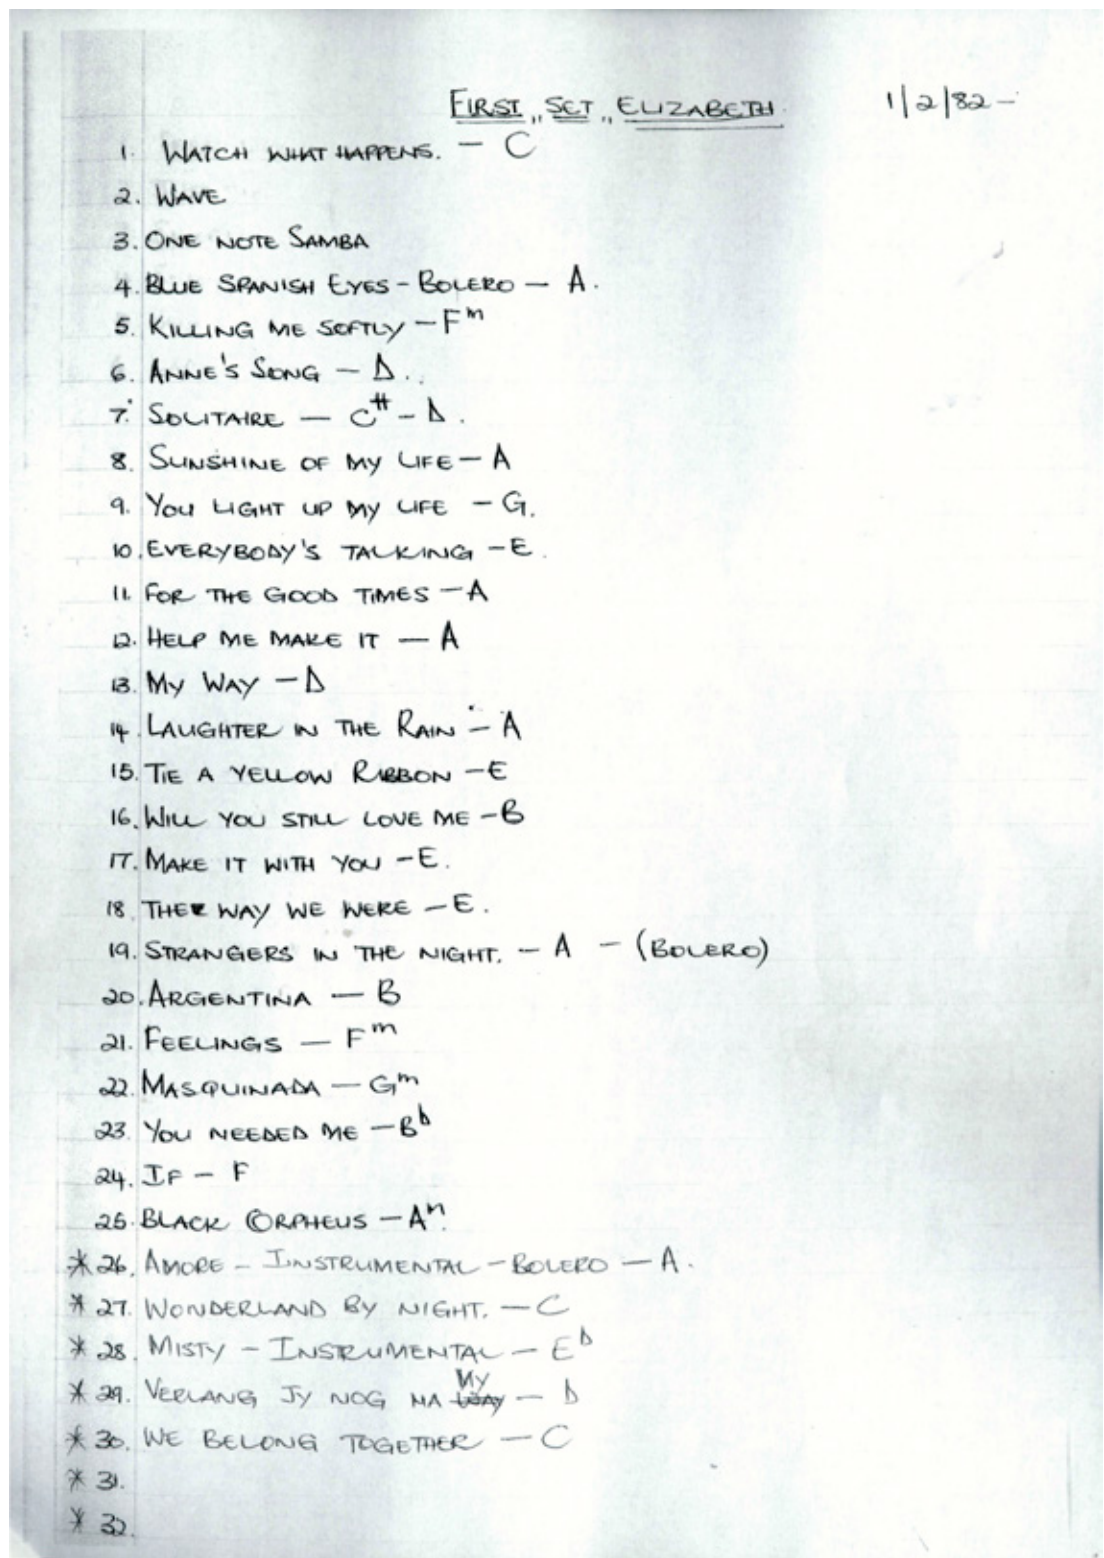 FIRST ,, SET ,, ELIZABETH. 1/2/82 -
1. WATCH WHAT HAPPENS. - C
2. WAVE
3. ONE NOTE SAMBA
4. BLUE SPANISH EYES - BOLERO - A.
5. KILLING ME SOFTLY - Fm
6. ANNE'S SONG - D..
7. SOLITAIRE - C# - D.
8. SUNSHINE OF MY LIFE - A
9. YOU LIGHT UP MY LIFE - G.
10. EVERYBODY'S TALKING - E.
11. FOR THE GOOD TIMES - A
12. HELP ME MAKE IT - A
13. MY WAY - D
14. LAUGHTER IN THE RAIN - A
15. TIE A YELLOW RIBBON - E
16. WILL YOU STILL LOVE ME - B
17. MAKE IT WITH YOU - E.
18. THE WAY WE WERE - E.
19. STRANGERS IN THE NIGHT. - A - (BOLERO)
20. ARGENTINA - B
21. FEELINGS - Fm
22. MASQUINADA - Gm
23. YOU NEEDED ME - Bb
24. IF - F
25. BLACK ORPHEUS - Am.
* 26. AMORE - INSTRUMENTAL - BOLERO - A.
* 27. WONDERLAND BY NIGHT. - C
* 28. MISTY - INSTRUMENTAL - Eb
* 29. VERLANG JY NOG NA MY - D
* 30. WE BELONG TOGETHER - C
* 31.
* 32.